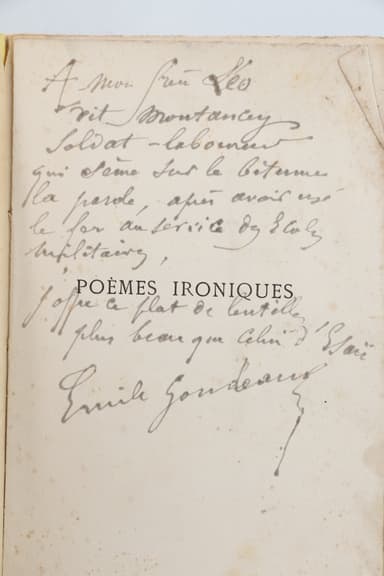 A mon frère Léo
dit Montancey
Soldat-laboureur
qui sème sur le bitume
la parole, après avoir usé
le fer au service des Écoles
militaires,
POÈMES IRONIQUES
j'offre ce plat de lentilles
plus beau que celui d'Esaü
Emile Goudeau